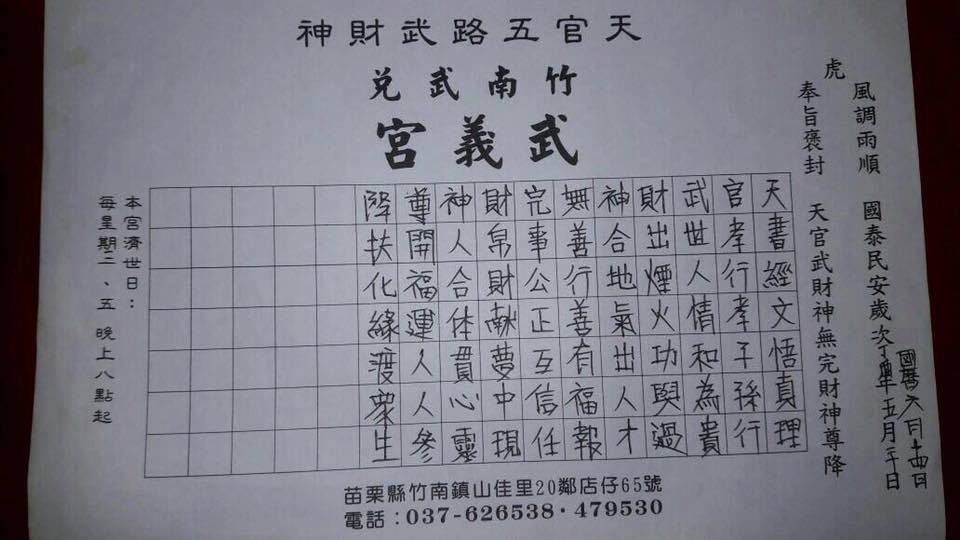 天官五路武財神
竹南武兌
武義宮
國曆六月十四日
風調雨順 國泰民安歲次丁酉年五月二十日
虎
奉旨褒封 天官武財神無完財神尊降
天書經文悟真理
官孝行孝子孫行
武世人情和為貴
財出煙火功與過
神合地氣出人才
無善行善有福報
完事公正互信任
財帛財献夢中現
神人合体貫心靈
尊開福運人人參
降扶化緣渡眾生
本宮濟世日：
每星期二、五 晚上八點起
苗栗縣竹南鎮山佳里20鄰店仔65號
電話：037-626538·479530